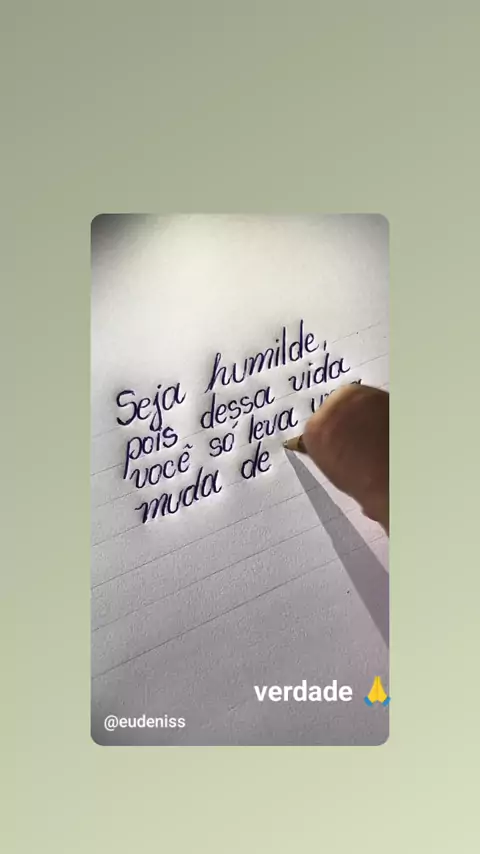 Seja humilde,
pois dessa vida
você só leva
muda de
verdade 🙏
@eudeniss